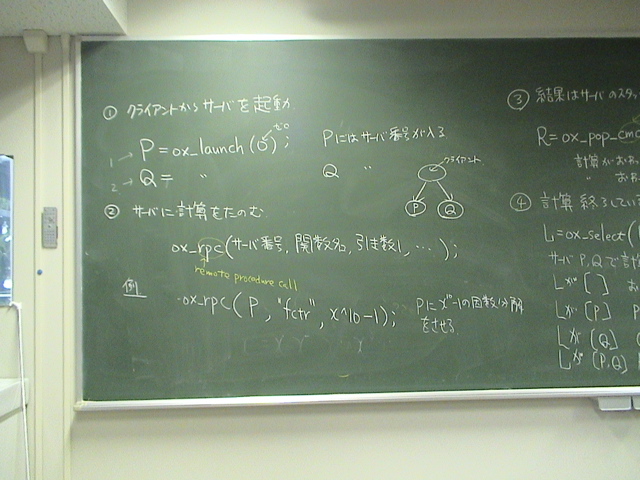 ① クライアントからサーバを起動
ゼロ
1→ P=ox_launch(0);
Pにはサーバ番号が入る
2→ Q= 〃
Q 〃
クライアント
P Q
② サーバに計算をたのむ
ox_rpc(サーバ番号, 関数名, 引き数1, …);
remote procedure call
例
ox_rpc(P, "fctr", x^10-1);
Pにx^10-1の因数分解
をさせる
③ 結果はサーバのスタッ
R=ox_pop_cmo
計算がおわ
〃 おわ
④ 計算終了してい
L=ox_select(
サーバP,Qで計
Lが []
Lが [P] P
Lが [Q]
Lが [P,Q]